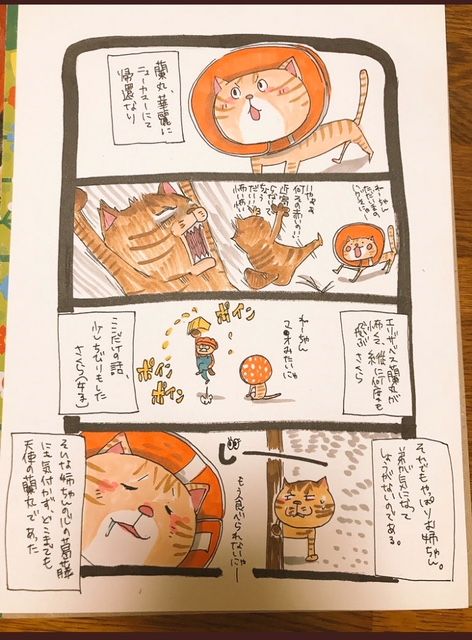 蘭丸、華麗に
ニューカラーにて
帰還なり
ねーちゃん
ただいまの
いやぁよ
何その赤いの!!
近寄
らないで
ちょう
だい!!
怖い怖い
エリザベス蘭丸が
怖くて縦に何度も
飛ぶさくら
ねーちゃん
マ〇オみたいにゃ
ポイン
ポイン
ポイン
ここだけの話、
少しちびりもした
さくら(女子)
それでもやっぱりお姉ちゃん。
弟が気になって
しょうがないのである。
じー
もう食べられないにゃー
そんな姉ちゃんの心の葛藤
にも気付かず、どこまでも
天使の蘭丸であった